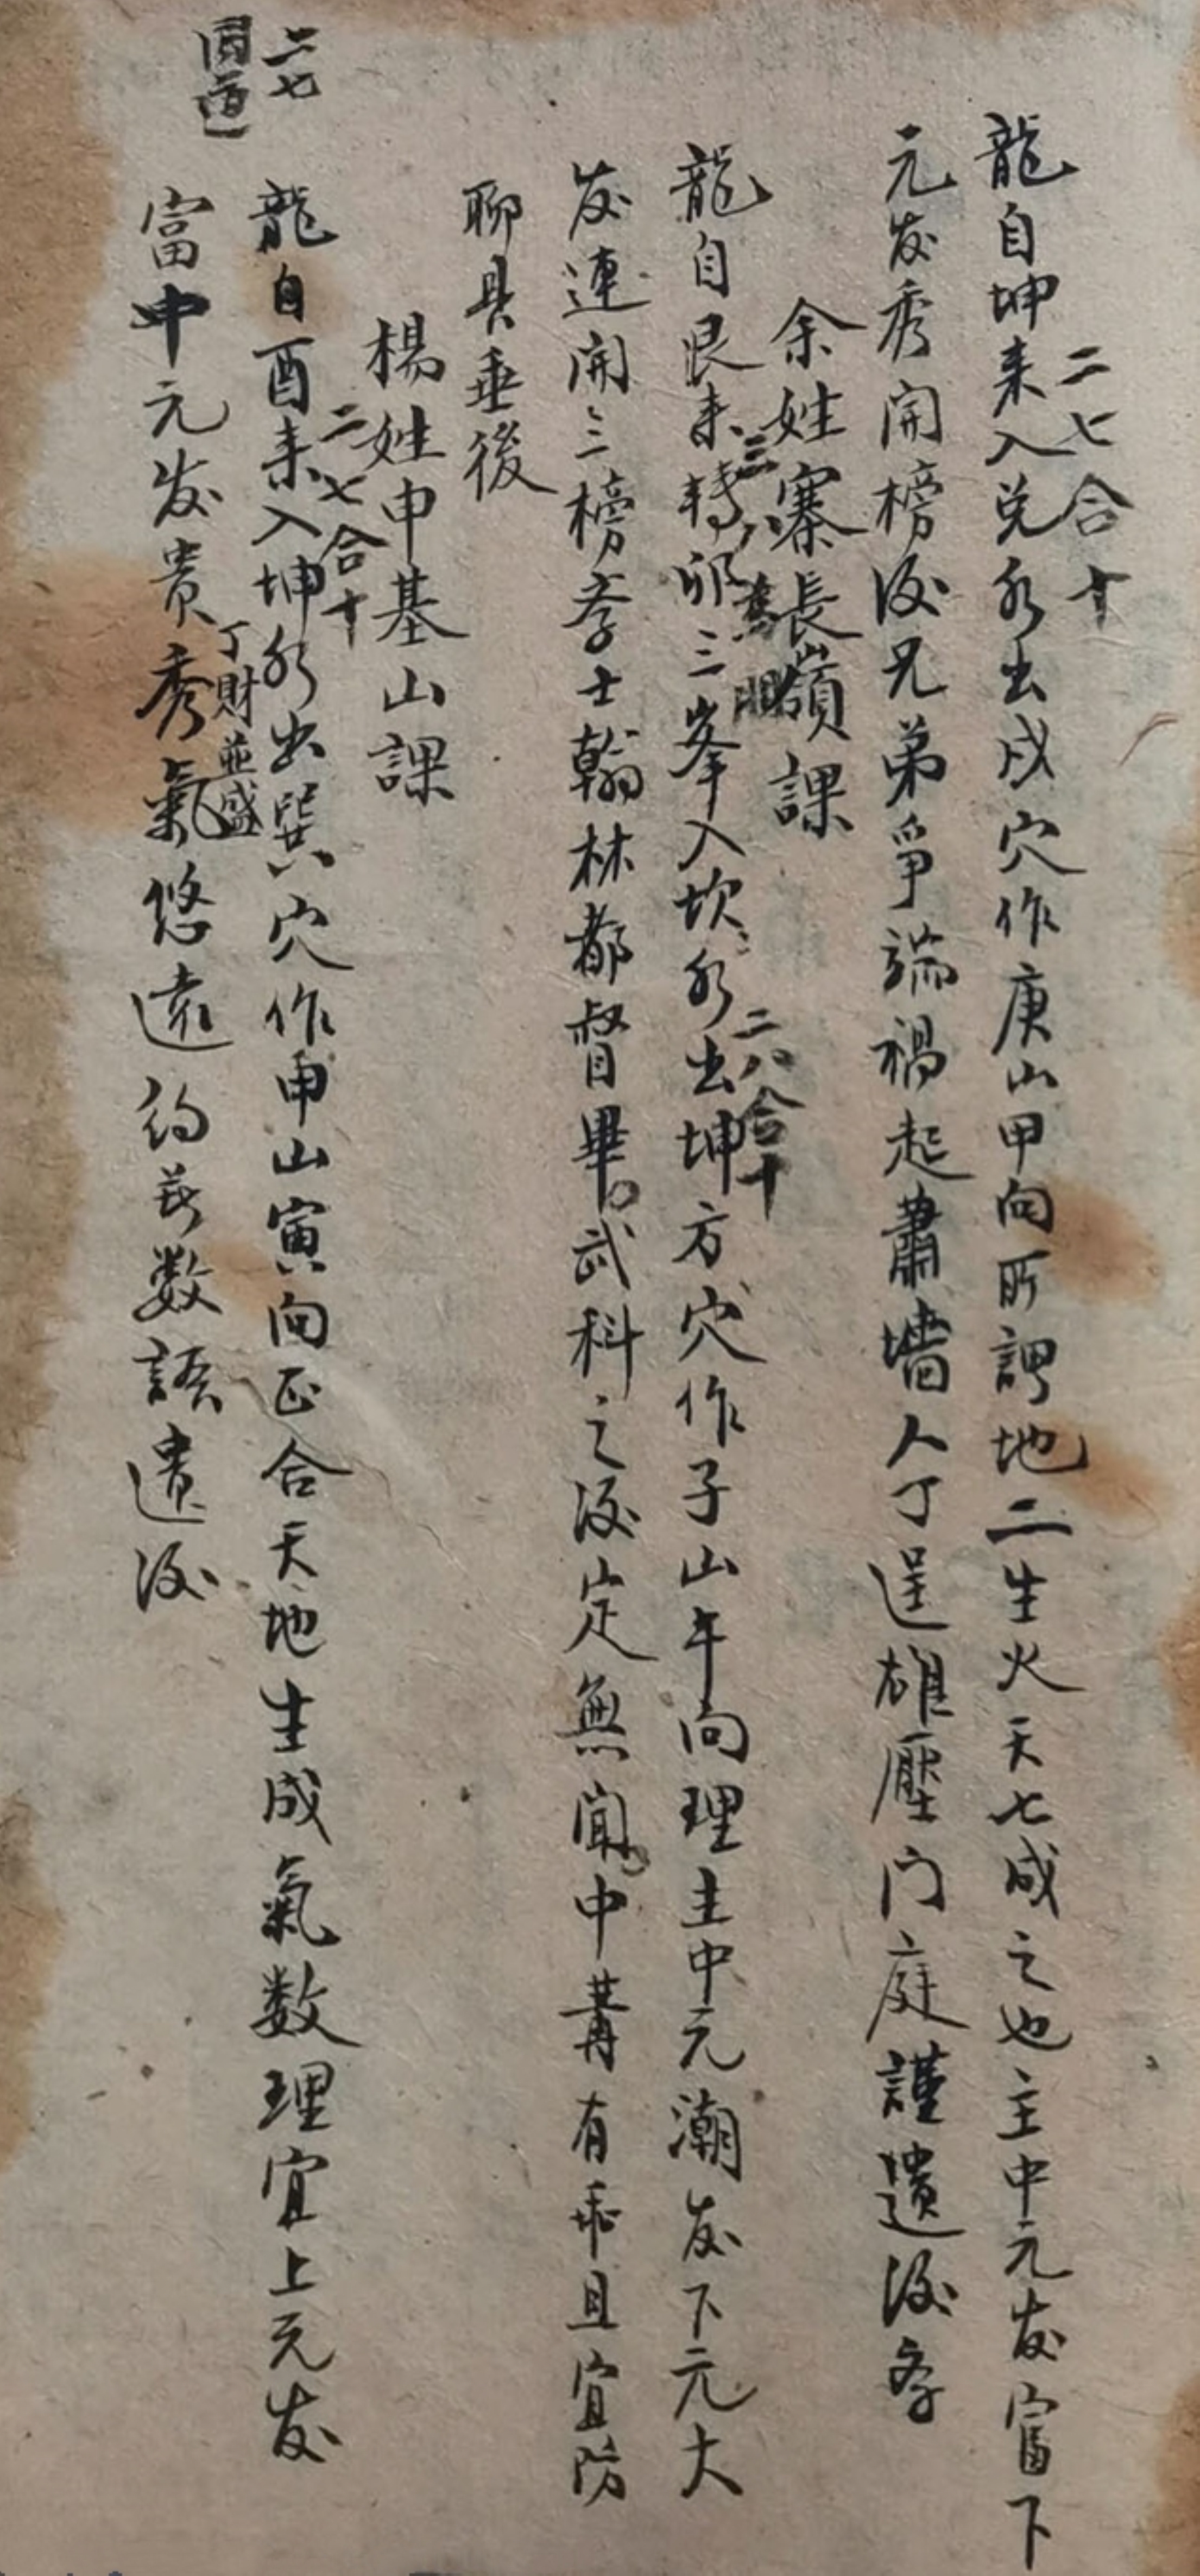 二七合十
龍自坤来入兑水出戌穴作庚山甲向所謂地二生火天七成之也主中元发富下
元发秀開榜後兄弟爭端禍起蕭墻人丁逞雄壓门庭謹遺後
余姓寨長嶺課
三八為朋
二八合十
龍自艮来轉卯三峯入坎水出坤方穴作子山午向理主中元潮发下元大
发連開三榜孝士翰林都督畢武科之後定無聞中冓有乖且宜防
聊具垂後
楊姓申基山課
二七合十
龍自酉来入坤水出巽穴作申山寅向正合天地生成氣数理宜上元发
丁財並盛
富中元发貴秀氣悠遠約茲数語遺後
二七
同道